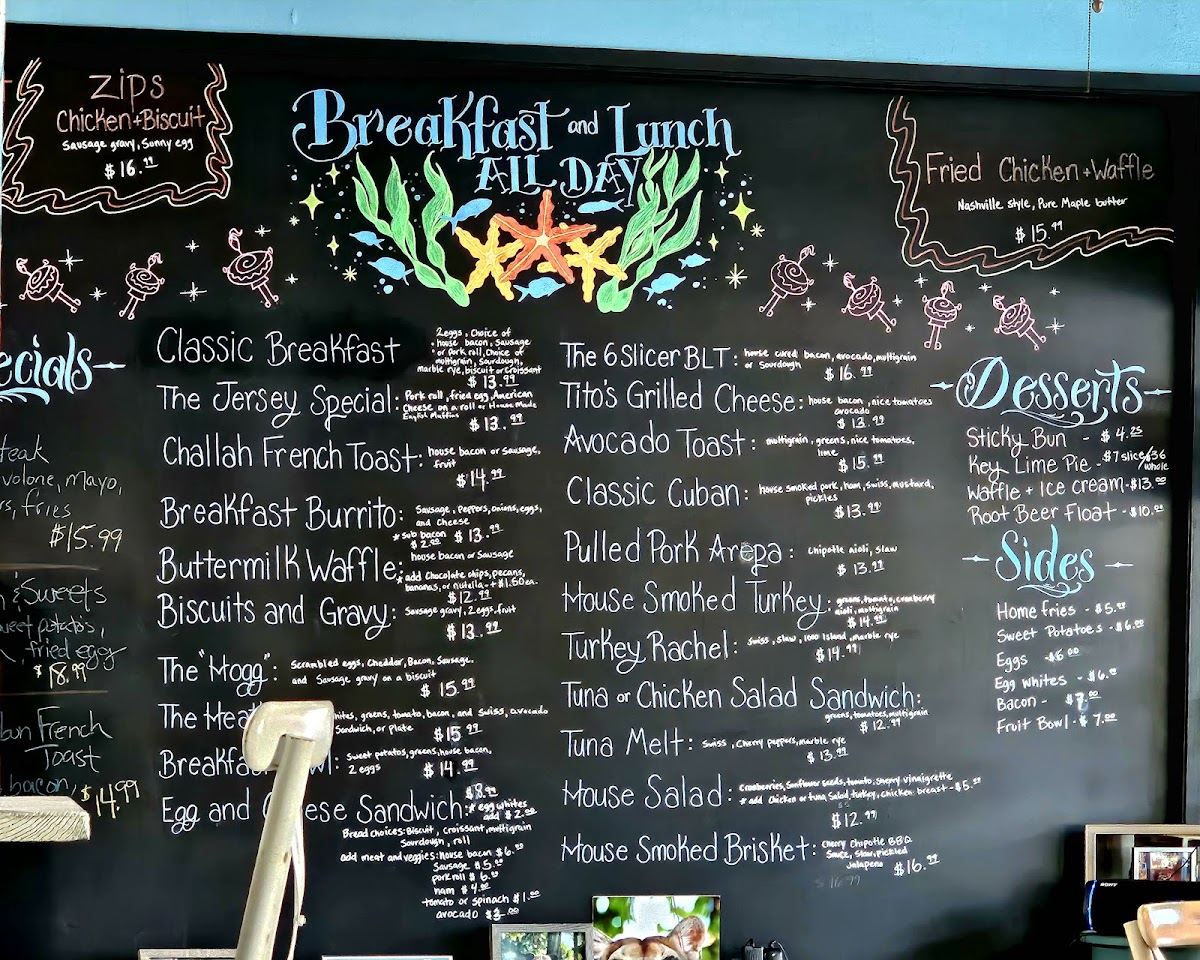 Zips
Chicken + Biscuit
Sausage gravy, Sunny egg
$16.99
Breakfast and Lunch
ALL DAY
Fried Chicken + Waffle
Nashville style, Pure Maple butter
$15.99
ecials
teak
volone, mayo,
rs, fries
$15.99
& Sweets
weet potatos,
fried egg
$18.99
bun French
Toast
bacon, $14.99
Classic Breakfast
2 eggs, Choice of
house bacon, Sausage
or Pork roll, Choice of
multigrain, Sourdough,
marble rye, biscuit or Croissant
$13.99
The Jersey Special: Pork roll, fried egg, American
Cheese on a roll or House Made
English Muffins
$13.99
Challah French Toast: house bacon or Sausage,
fruit
$14.99
Breakfast Burrito: Sausage, Peppers, onions, eggs,
and Cheese
* sub bacon $2.00 $13.99
Buttermilk Waffle: house bacon or Sausage
* add Chocolate chips, pecans,
bananas, or nutella - + $1.50 ea.
$12.99
Biscuits and Gravy: Sausage gravy, 2 eggs, fruit
$13.99
The "Mogg": Scrambled eggs, Cheddar, Bacon, Sausage.
and Sausage gravy on a biscuit
$15.99
The Hea hites, greens, tomato, bacon, and Swiss, avocado
Sandwich, or Plate $15.99
Breakfa wl: Sweet potatos, greens, house bacon,
2 eggs $14.99
$8.99
Egg and C ese Sandwich: * egg whites
add $2.00
Bread choices: Biscuit, Croissant, multigrain
Sourdough, roll
add meat and veggies: house bacon $6.00
Sausage $5.00
pork roll $6.00
ham $4.00
tomato or spinach $1.00
avocado $3.00
The 6 Slicer BLT: house cured bacon, avocado, multigrain
or Sourdough $16.99
Tito's Grilled Cheese: house bacon, nice tomatoes
avocado
$13.99
Avocado Toast: multigrain, greens, nice tomatoes,
lime
$15.99
Classic Cuban: house smoked pork, ham, swiss, mustard,
pickles
$13.99
Pulled Pork Arepa: Chipotle aioli, slaw
$13.99
House Smoked Turkey: greens, tomato, cranberry
aioli, multigrain
$14.99
Turkey Rachel: Swiss, Slaw, 1000 Island, marble rye
$14.99
Tuna or Chicken Salad Sandwich:
greens, tomatoes, multigrain
$12.99
Tuna Melt: Swiss, Cherry peppers, marble rye
$13.99
House Salad: Cranberries, Sunflower seeds, tomato, Sherry vinaigrette
* add Chicken or tuna Salad, turkey, chicken breast - $5.00
$12.99
House Smoked Brisket: Cherry Chipotle BBQ
Sauce, Slaw, pickled
Jalapeño $16.99
Desserts
Sticky Bun - $4.25
Key Lime Pie - $7 slice/$36
/whole
Waffle + Ice cream - $13.00
Root Beer Float - $10.00
Sides
Home fries - $5.00
Sweet Potatoes - $6.00
Eggs - $6.00
Egg Whites - $6.00
Bacon - $7.00
Fruit Bowl - $7.00
SONY